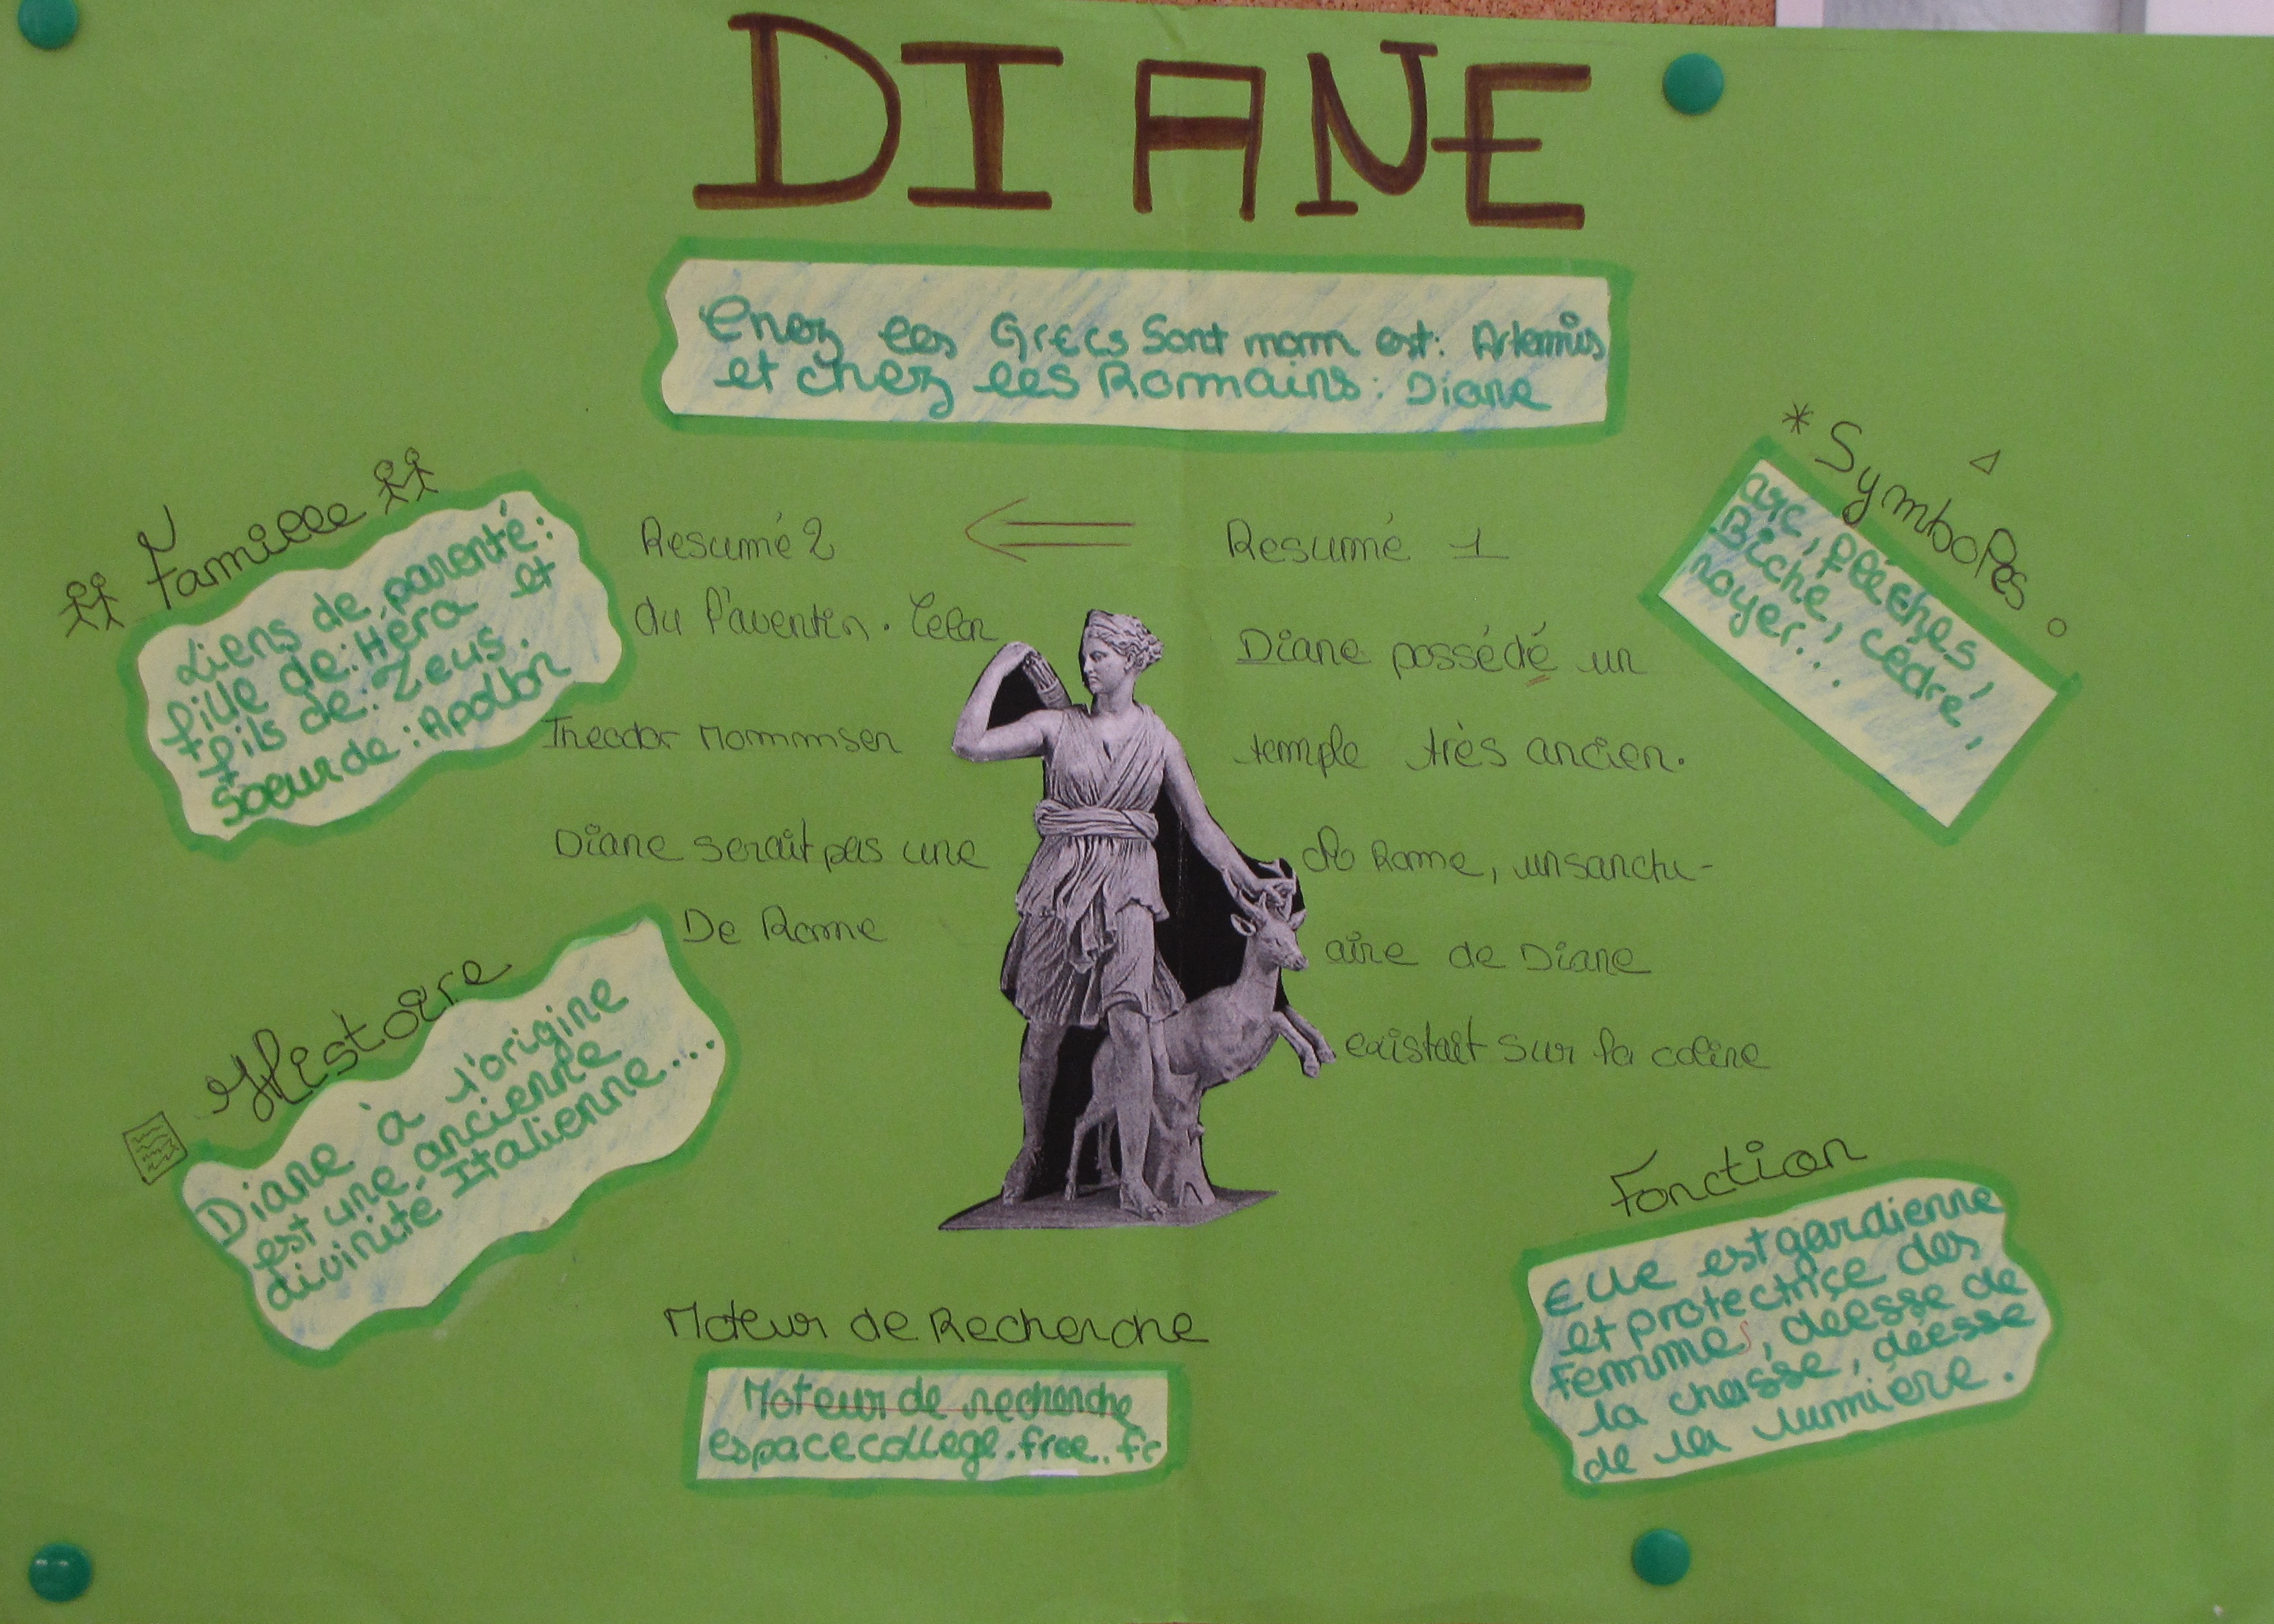 DIANE
Chez les Grecs Sont nom est: Artemis
et chez les Romains: Diane
Famille
Liens de parenté:
fille de: Héra et
fils de: Zeus.
Soeur de: Apollon
Resumé 2
du l'aventin. Selon
Theodor Mommsen
Diane serait pas une
De Rome
Resumé 1
Diane possédé un
temple très ancien.
de Rome, un sanctu-
aire de Diane
existait sur la coline
* Symboles
arc, flèches,
Biche, cédré,
noyer...
Histoire
Diane à l'origine
est une ancienne
divinité Italienne....
Moteur de Recherche
Moteur de recherche
espacecollege.free.fr
Fonction
Elle est gardienne
et protectrice des
femmes, déesse de
la chasse, déesse
de la lumière.